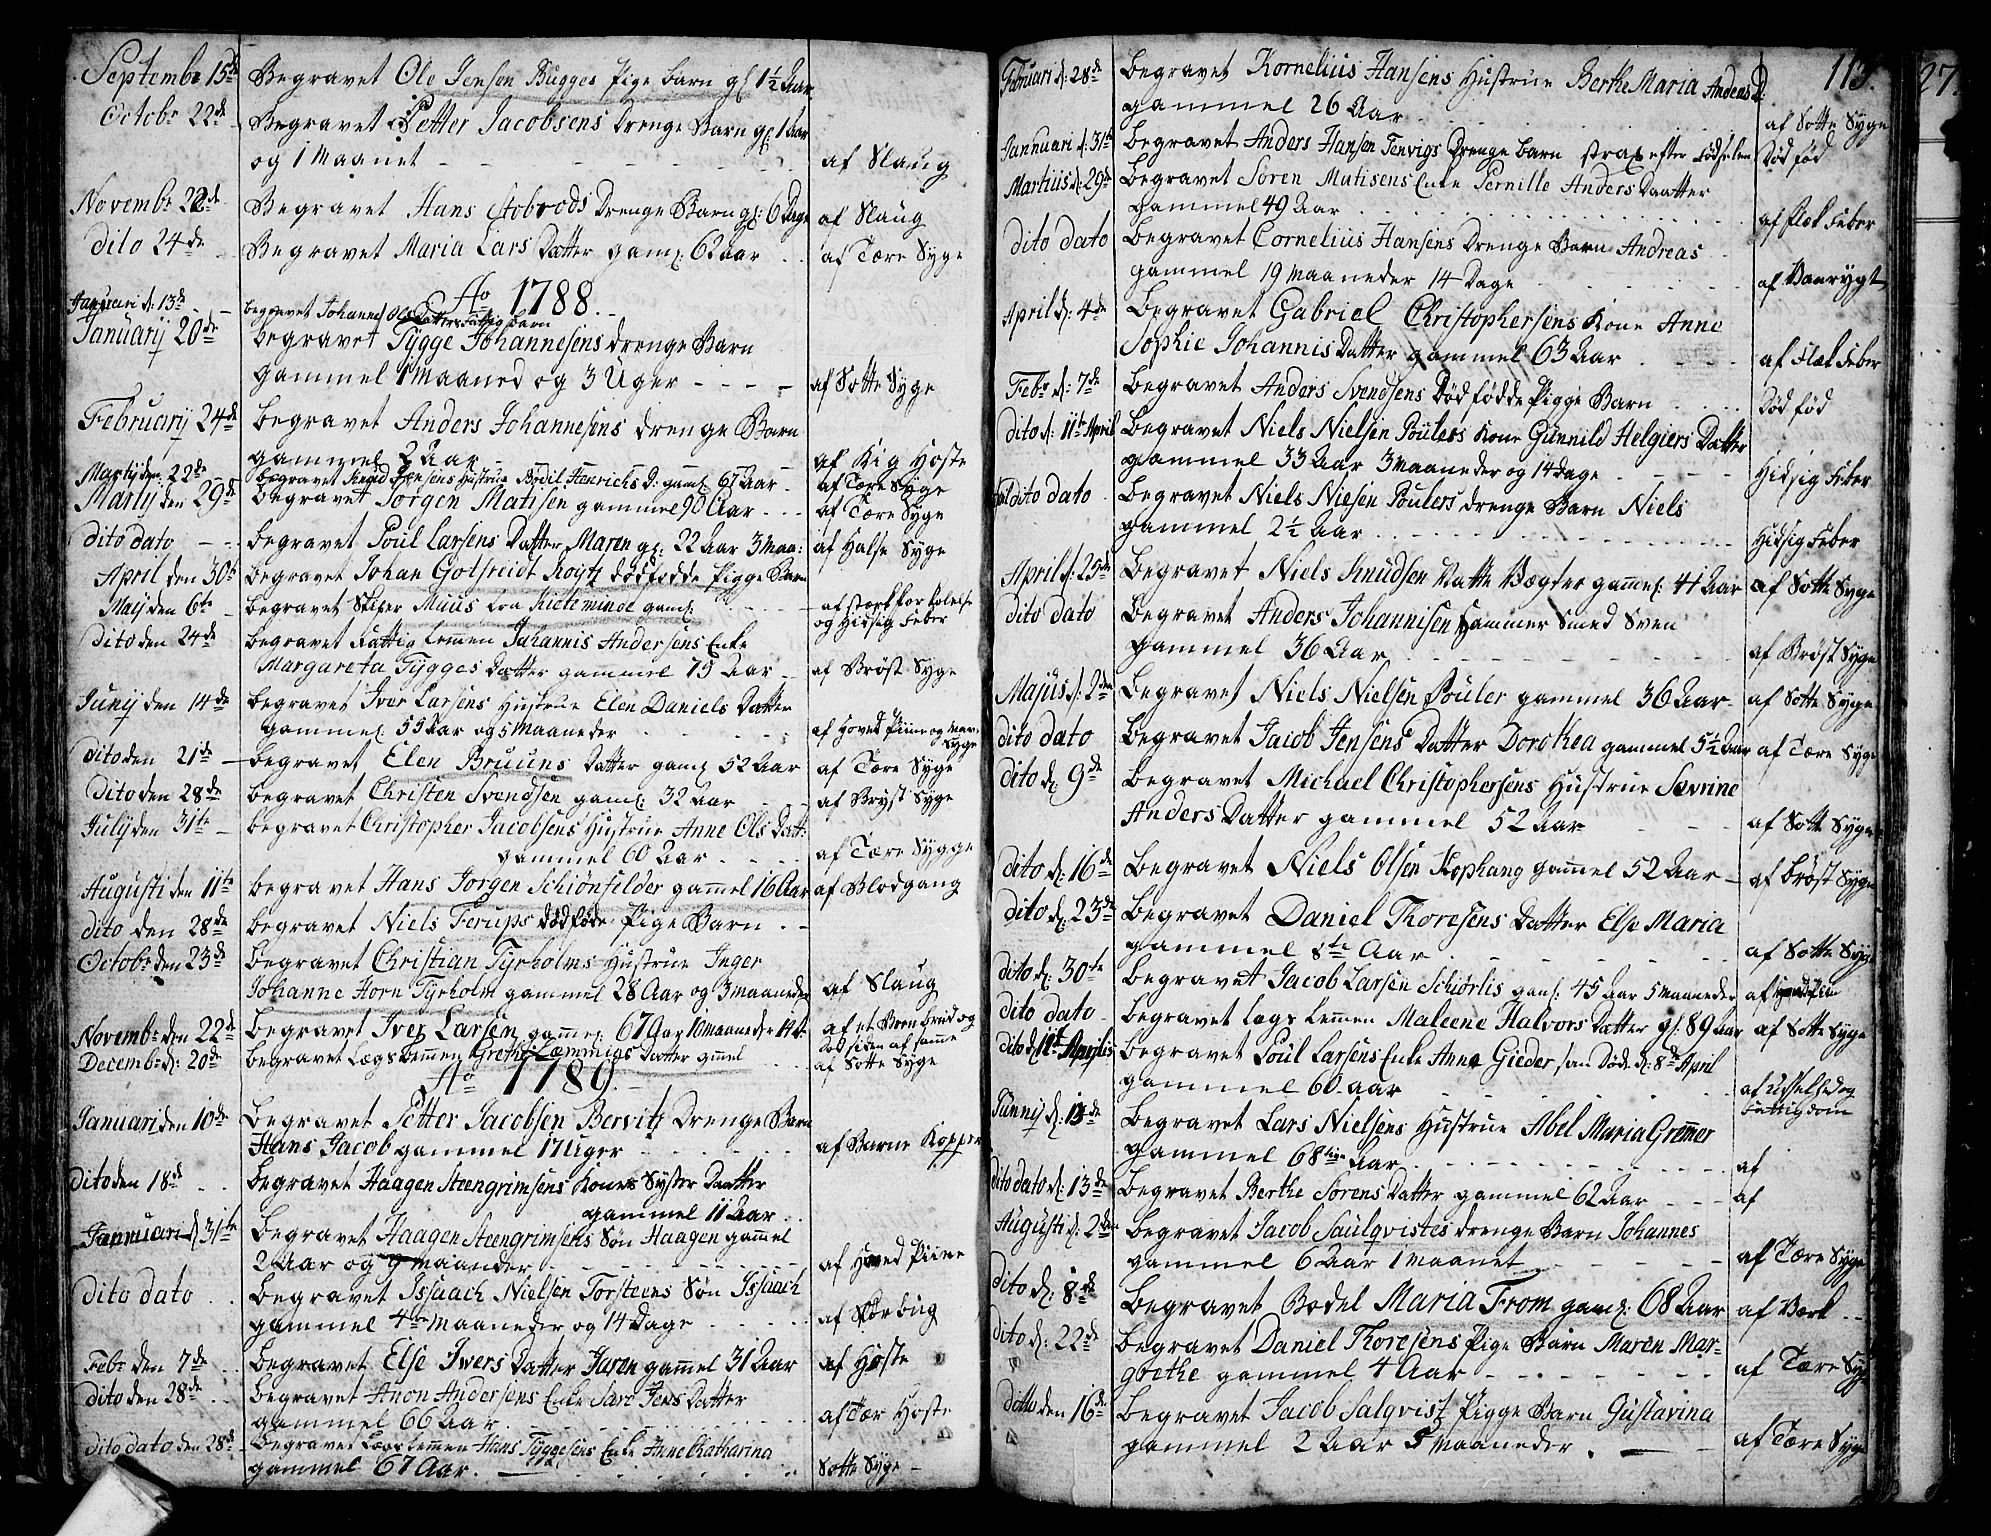 Septembr 15de Begravet Ole Jenson Bugges Pige barn gl 1½ Aar
Octobr 22de Begravet Petter Jacobsens Drenge Barn gl 1 Aar
og 1 Maanet af Slaug
Novembr 22de Begravet Hans Drenge Barn gl: 6 Dage af Slaug
dito 24de Begravet Maria Lars Datter gaml: 62 Aar af Tære Syge
Ao 1788.
Januari d: 13de begravet Johannes Ols Datters fattig barn
Januarij 20de begravet Tygge Johannesens drenge Barn
gammel 1 Maaned og 3 Uger af Sotte Syge
Februarij 24de begravet Anders Johannesens drenge Barn
gammel 2 Aar af Kig Hoste
Martij den 22de begravet Knud Hustrue Bodil Henrichs D. gaml 67 Aar af Tære Syge
Martij den 29de begravet Jørgen Matisen gammel 90 Aar af Tære Syge
dito dato begravet Poul Larsens Datter Maren gl: 22 Aar 3 Maa: af Halse Syge
April den 30te begravet Johan Golfreidt dødfødde Pigge Barn
Maij den 6te begravet Skiper Muus fra Kieteminde gaml af stærk forkølelse
og Hidsig Feber
dito den 24de begravet Fattig Lemmen Johannis Andersens Enke
Margareta Tygges Datter gammel 75 Aar af Brøst Syge
Junij den 14de begravet Iver Larsens Hustrue Elen Daniels Datter
gammel 55 Aar og 5 Maaneder af Hoved Piine og
Syge
dito den 21de begravet Elen Bruuns Datter gaml 52 Aar af Tære Syge
dito den 28de begravet Christen Svendsen gaml: 32 Aar af Bryst Syge
Julij den 31te begravet Christopher Jacobsens Hustrue Anne Ols Datt:
gammel 60 Aar af Tære Sygge
Augusti den 11te begravet Hans Jørgen Schiønfelder gamel 16 Aar af Blodgang
dito den 28de begravet Niels Ferups dødføde Pige Barn
Octobr den 23de begravet Christian Tyrholms Hustrue Inger
Johanne Horn Tyrholm gammel 28 Aar og 3 Maaneder af Slaug
Novembr den 22de begravet Iver Larsen gamel: 67 Aar 10 Maaneder af et Been brud og
Død siden af samme
Decembr d: 20de begravet Lægs Lemmen Grethe Datter af Sotte Syge
Ao 1789.
Januari den 10de begravet Petter Jacobsen Bervitz Drenge Barn
Hans Jacob gammel 17 Uger af Barne Kopper
dito den 18de begravet Haagen Steengrimsens Kones Syster Datter
gammel 11 Aar
Januari d 31te begravet Haagen Steengrimsens Søn Haagen gamel
2 Aar og 9 maander af Hoved Piine
dito dato begravet Issaach Nielsen Torsteens Søn Issaach
gammel 4re Maaneder og 14 Dage
Febr den 7de begravet Else Iwers Datter Juren gamel 31 Aar af Hoste
dito den 28de begravet Anon Andersens Enke Sare Jens Datter
gammel 66 Aar af Tær Hoste
dito dato den 28de begravet Lægs Lemmen Hans Tyggesens Enke Anne Katharina
gammel 67 Aar. Sotte Syge
113. 27.
Januari d: 28de begravet Kornelius Hansens Hustrue Berthe Maria Andreas D.
gammel 26 Aar af Sotte Syge
Jannuari d: 31te begravet Anders Hansen Tenvigs Drenge barn strax efter Fødselen Død fød
Martius d: 29de begravet Søren Matisens Enke Pernille Anders Datter
gammel 49 Aar af Flek Feber
dito dato begravet Cornelius Hansens Drenge Barn Andreas
gammel 19 maaneder 14 Dage
April d: 4de begravet Gabriel Christophersens Kone Anne
Sophie Johannis Datter gammel 63 Aar af Flek Feber
Febr d: 7de begravet Anders Svendsens Død fødde Pigge Barn Død fød
dito d: 11te April begravet Niels Nielsen Poulers Kone Gunnild Helgiers Datter
gammel 33 Aar 3 Maaneder og 14 Dage Hidsig Feber
dito dato begravet Niels Nielsen Poulers drenge Barn Niels
gammel 2½ Aar Hidsig Feber
April d: 25de begravet Niels Knudsen Natte Vægter gamel: 41 Aar af Sotte Syge
dito dato begravet Anders Johannisen Hammer Smed Sven
gammel 36 Aar af Brøst Syge
Majus d: 2den begravet Niels Nielsen Pouler gammel 36 Aar af Sotte Syge
dito dato begravet Jacob Jensens Datter Dorothea gammel 5½ Aar af Tære Syge
dito d: 9de begravet Michael Christophersens Hustrue Sevrine
Anders Datter gammel 52 Aar af Sotte Syge
dito d: 16de begravet Niels Olsen Kophang gamel 52 Aar af brøst Syge
dito d: 23de begravet Daniel Thoresens Datter Else Maria
gammel 8te Aar af Sotte Syge
dito d: 30te begravet Jacob Larsen Schiørlis gaml: 45 Aar 5 Maaneder af
dito dato begravet Lægs Lemen Maleene Halvors Datter gl: 89 Aar af Sotte Syge
dito d 11te Aprilis begravet Poul Larsens Enke Anne Gieder, som Døde d: 8de April
gammel 60 Aar af Usselhed og
Fattigdom
Junnij d: 13de begravet Lars Nielsens Hustrue Abel Maria Gremer
gammel 68tive Aar af
dito dato d: 13de begravet Berthe Sørens Datter gammel 62 Aar af
Augusti d: 2den begravet Jacob Saulqvistes drenge Barn Johannes
gammel 6 Aar 1 Maanet af Tære Syge
dito d: 8de begravet Bodel Maria From gaml: 68 Aar af Værk
dito d: 22de begravet Daniel Thoresens Pige Barn Maren Mar-
grethe gammel 4 Aar af Tære Syge
ditto den 16de begravet Jacob Salqvist Pigge Barn Gustavina
gammel 2 Aar 5 Maaneder. af Tære Syge